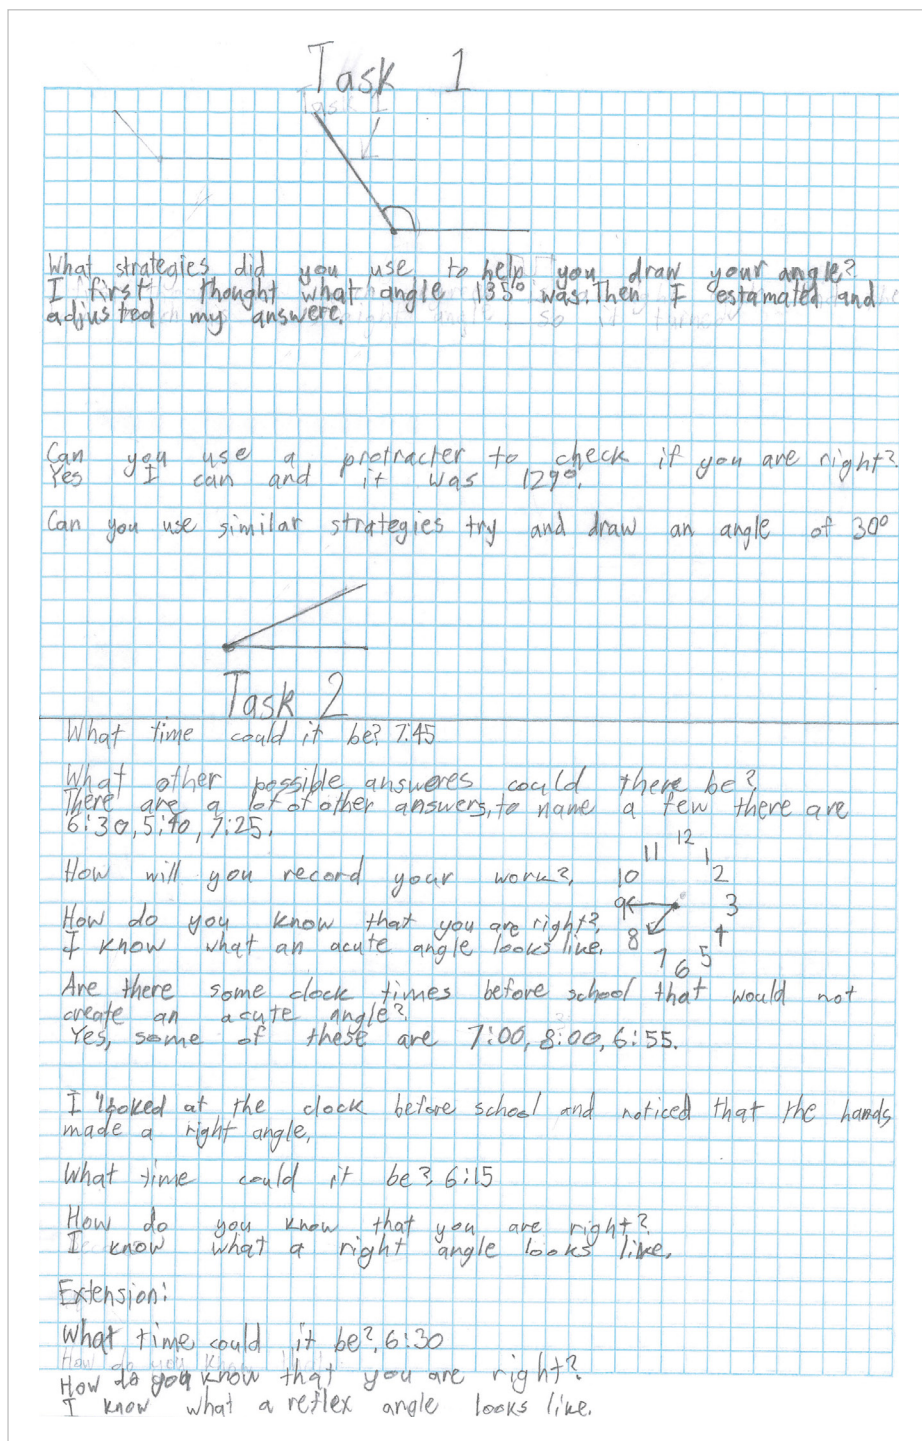 Task 1
What strategies did you use to help you draw your angle?
I first thought what angle 135° was. Then I estamated and
adjusted my answere.
Can you use a protracter to check if you are right?
Yes I can and it was 129°.
Can you use similar strategies try and draw an angle of 30°
Task 2
What time could it be? 7:45
What other possible answeres could there be?
There are a lot of other answers, to name a few there are
6:30, 5:40, 7:25.
How will you record your work?
12
11 1
10 2
9 3
8 4
7 5
6
How do you know that you are right?
I know what an acute angle looks like.
Are there some clock times before school that would not
create an acute angle?
Yes, some of these are 7:00, 8:00, 6:55.
I looked at the clock before school and noticed that the hands
made a right angle,
What time could it be? 6:15
How do you know that you are right?
I know what a right angle looks like.
Extension:
What time could it be? 6:30
How do you know that you are right?
I know what a reflex angle looks like.